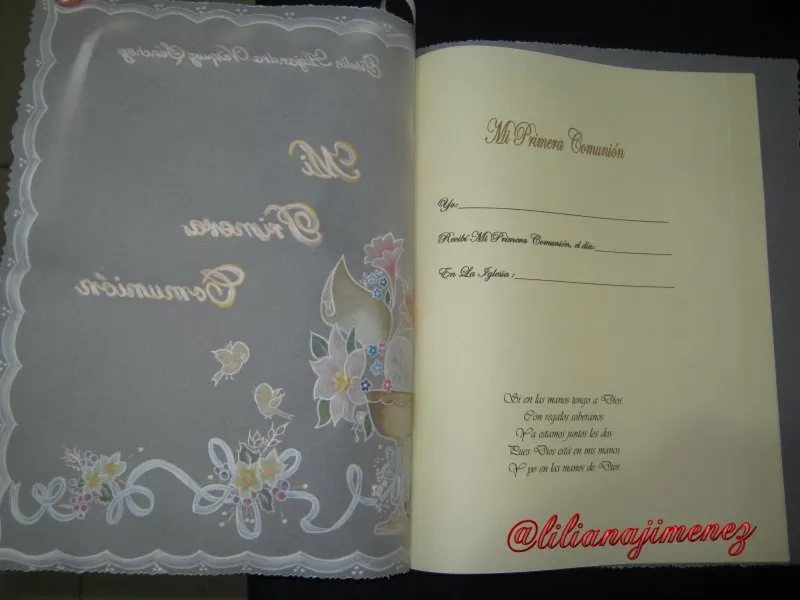 Vasquez Sanchez
Mi
Primera
Comunión
Mi Primera Comunión
Yo:
Recibí Mi Primera Comunión, el día:
En La Iglesia :
Si en las manos tengo a Dios
Con regalos soberanos
Ya estamos juntos los dos
Pues Dios está en mis manos
Y yo en las manos de Dios
@lilianajimenez